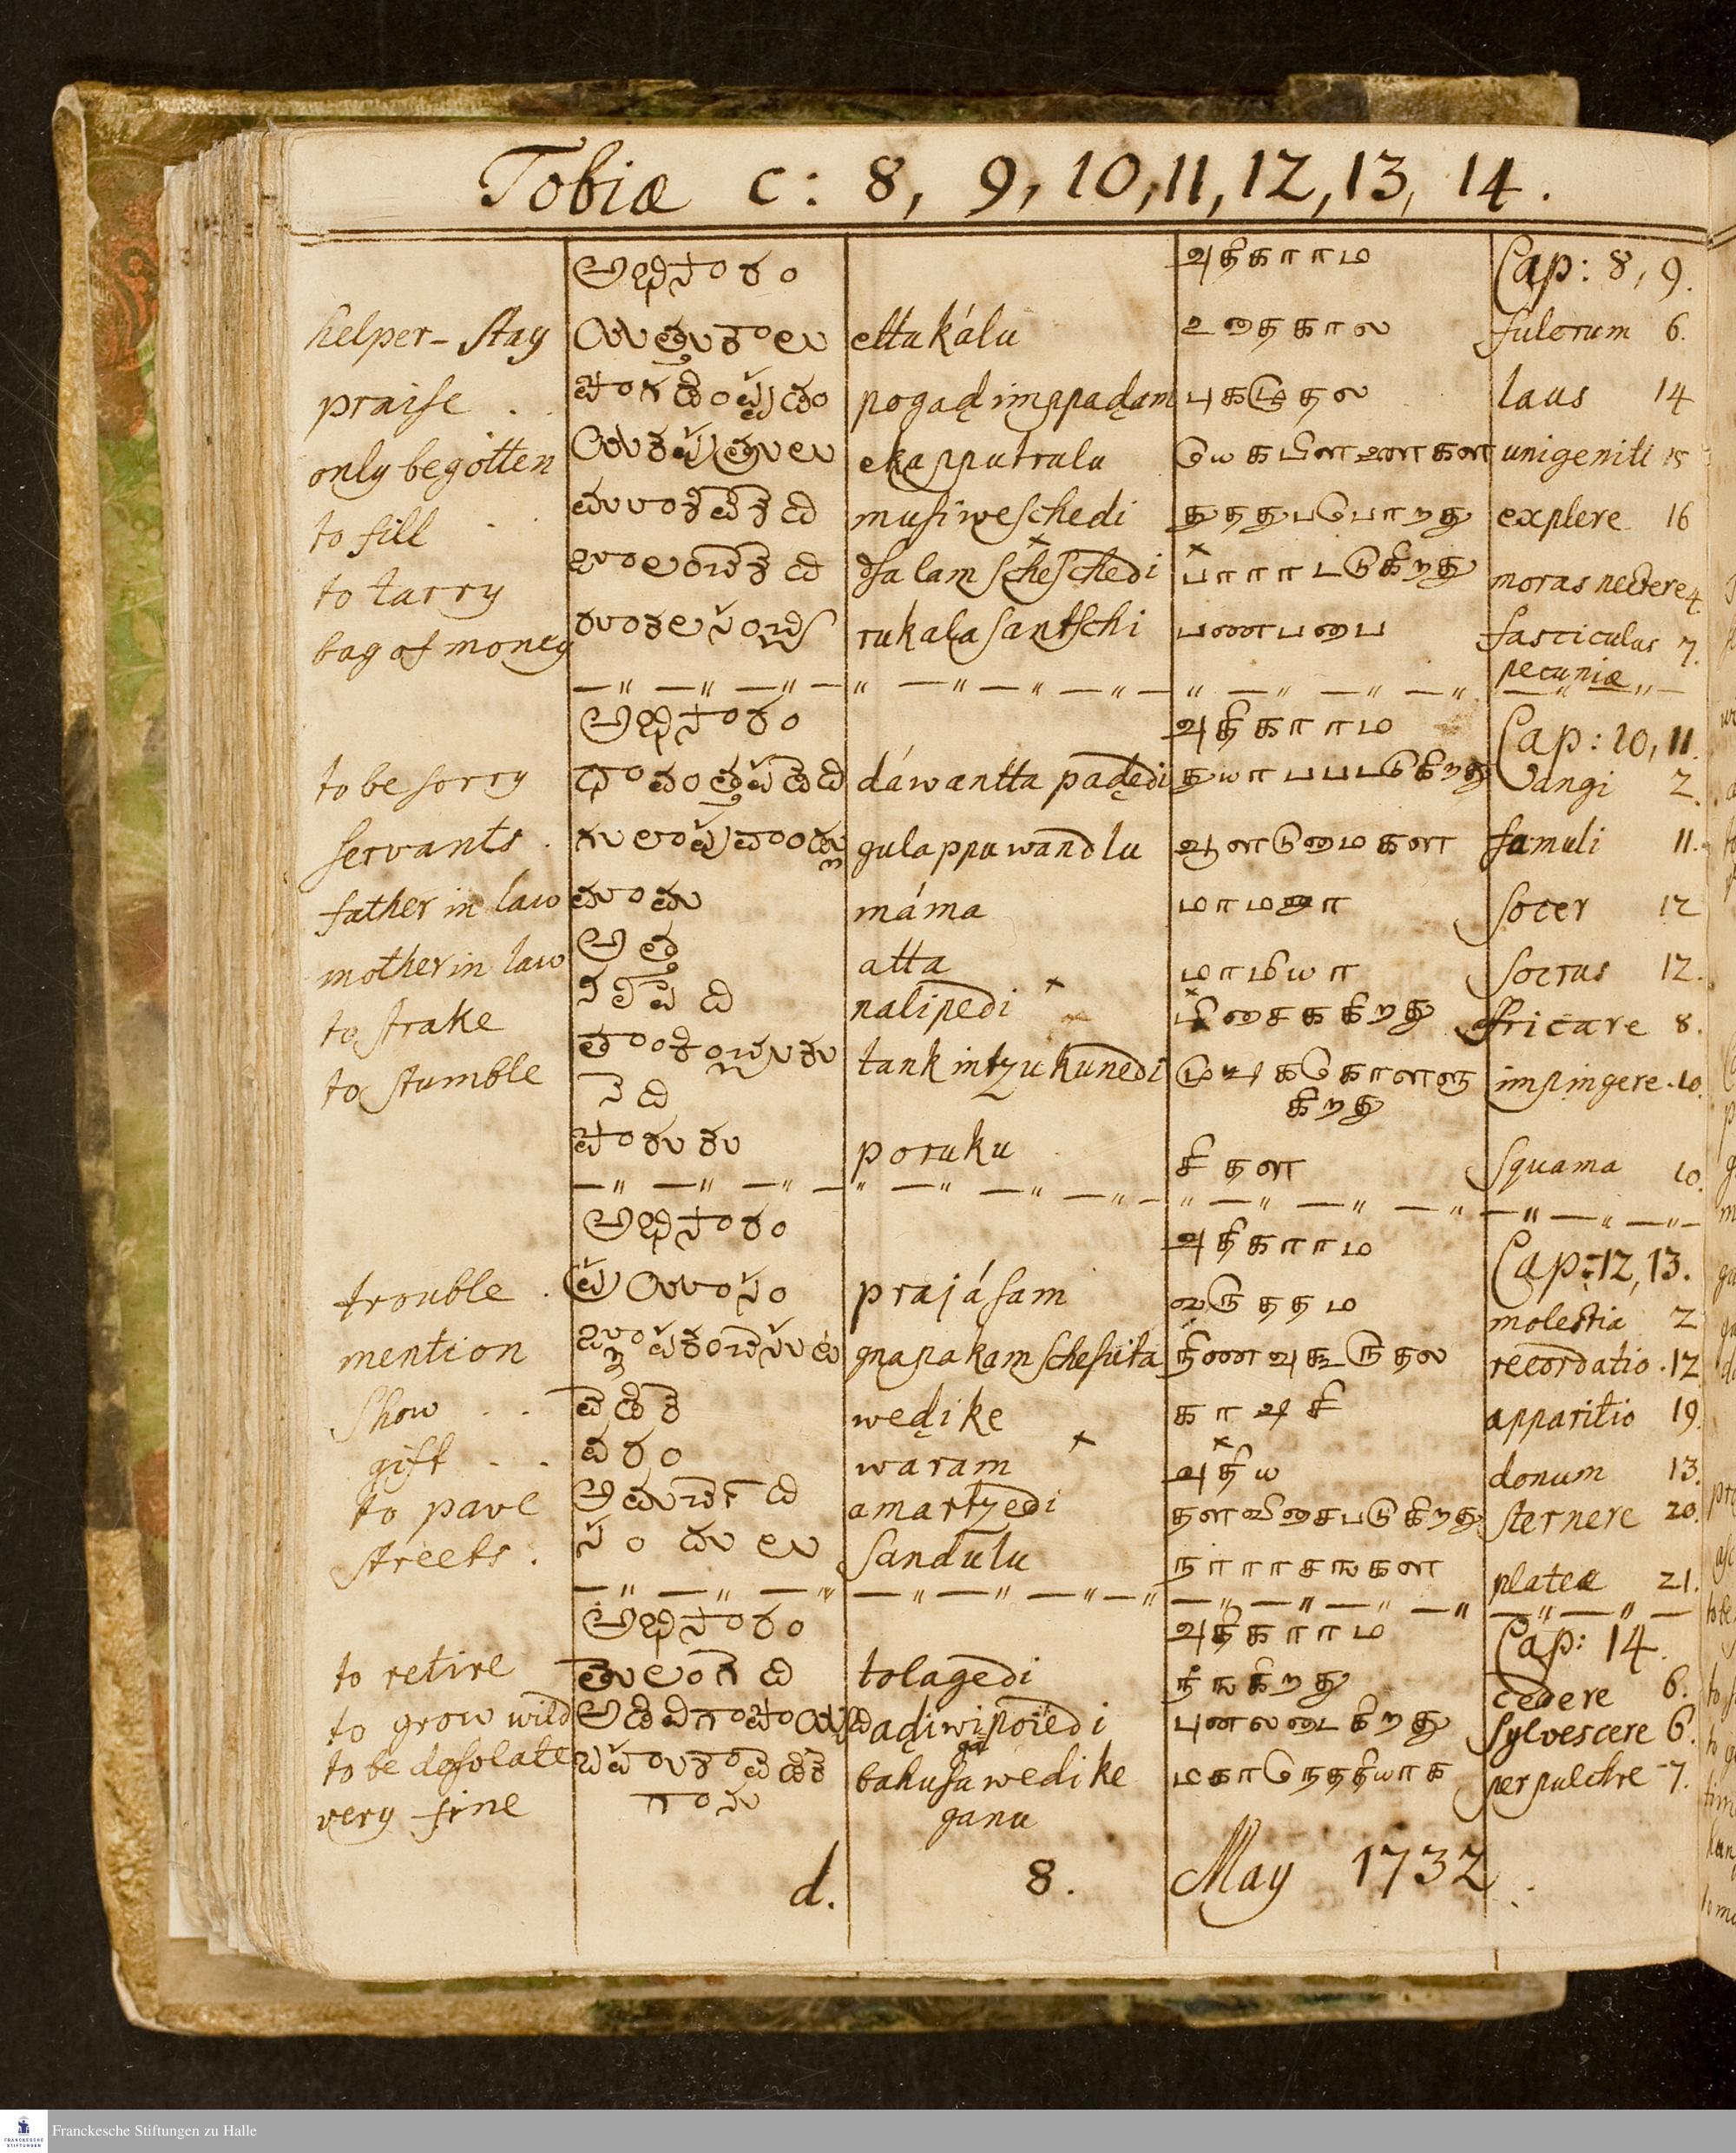 Tobiæ c: 8, 9, 10, 11, 12, 13, 14.
అధికారం அதிகாராம Cap: 8, 9.
helper-Stay యెత్తుకాలు ettukálu உதைகால fulcrum 6.
praise . . పొగడింప్పడం pogadimppadam புகழுதல laus 14
only begotten యేకప్పుత్రులు ekapputrulu unigeniti 15
to fill . . musiweschedi explere 16
to tarry dsalam scheschedi பாராடடுகிறது moras nectere 4.
bag of money రూకలసంచ్చి rukalasantschi பணபபை fasciculus 7.
pecuniæ
అధికారం அதிகாராம Cap: 10, 11.
to be sorry దావంత్తపడేది dáwantta padedi துயரபபடடுகிறது Vangi 2.
servants . గులాప్పువాండ్లు gulappuwandlu ஆளடுமைகள famuli 11.
father in law మామ máma மாமனா socer 12
mother in law అత్త atta மாமியா socrus 12.
to strake నలిపేది nalipedi fricare 8.
to stumble తాంకించ్చుకు tankintzukunedi முடடிகொளளு impingere . 10.
నేది கிறது
పొరుకు poruku செதள squama 10.
అధికారం அதிகாராம Cap: 12, 13.
trouble . ప్రయాసం prajásam வருததம molestia 2
mention gnapakam schesuta recordatio . 12
Show . . వేడికె wedike காடசி apparitio 19.
gift . . వరం waram donum 13.
to pave అమర్చేది amartzedi தளவிசைபடுகிறது sternere 20.
streets . సందులు sandulu plateæ 21.
అధికారం அதிகாராம Cap: 14.
to retire తొలంగేది tolagedi நீஙகிறது cedere 6.
to grow wild అడివిగాపొయ్యేది adiwi poiedi sylvescere 6.
ga
to be desolate bahusa wedike perpulchre 7.
very fine గాను ganu
d. 8. May 1732.
Franckesche Stiftungen zu Halle
FRANCKESCHE
STIFTUNGEN